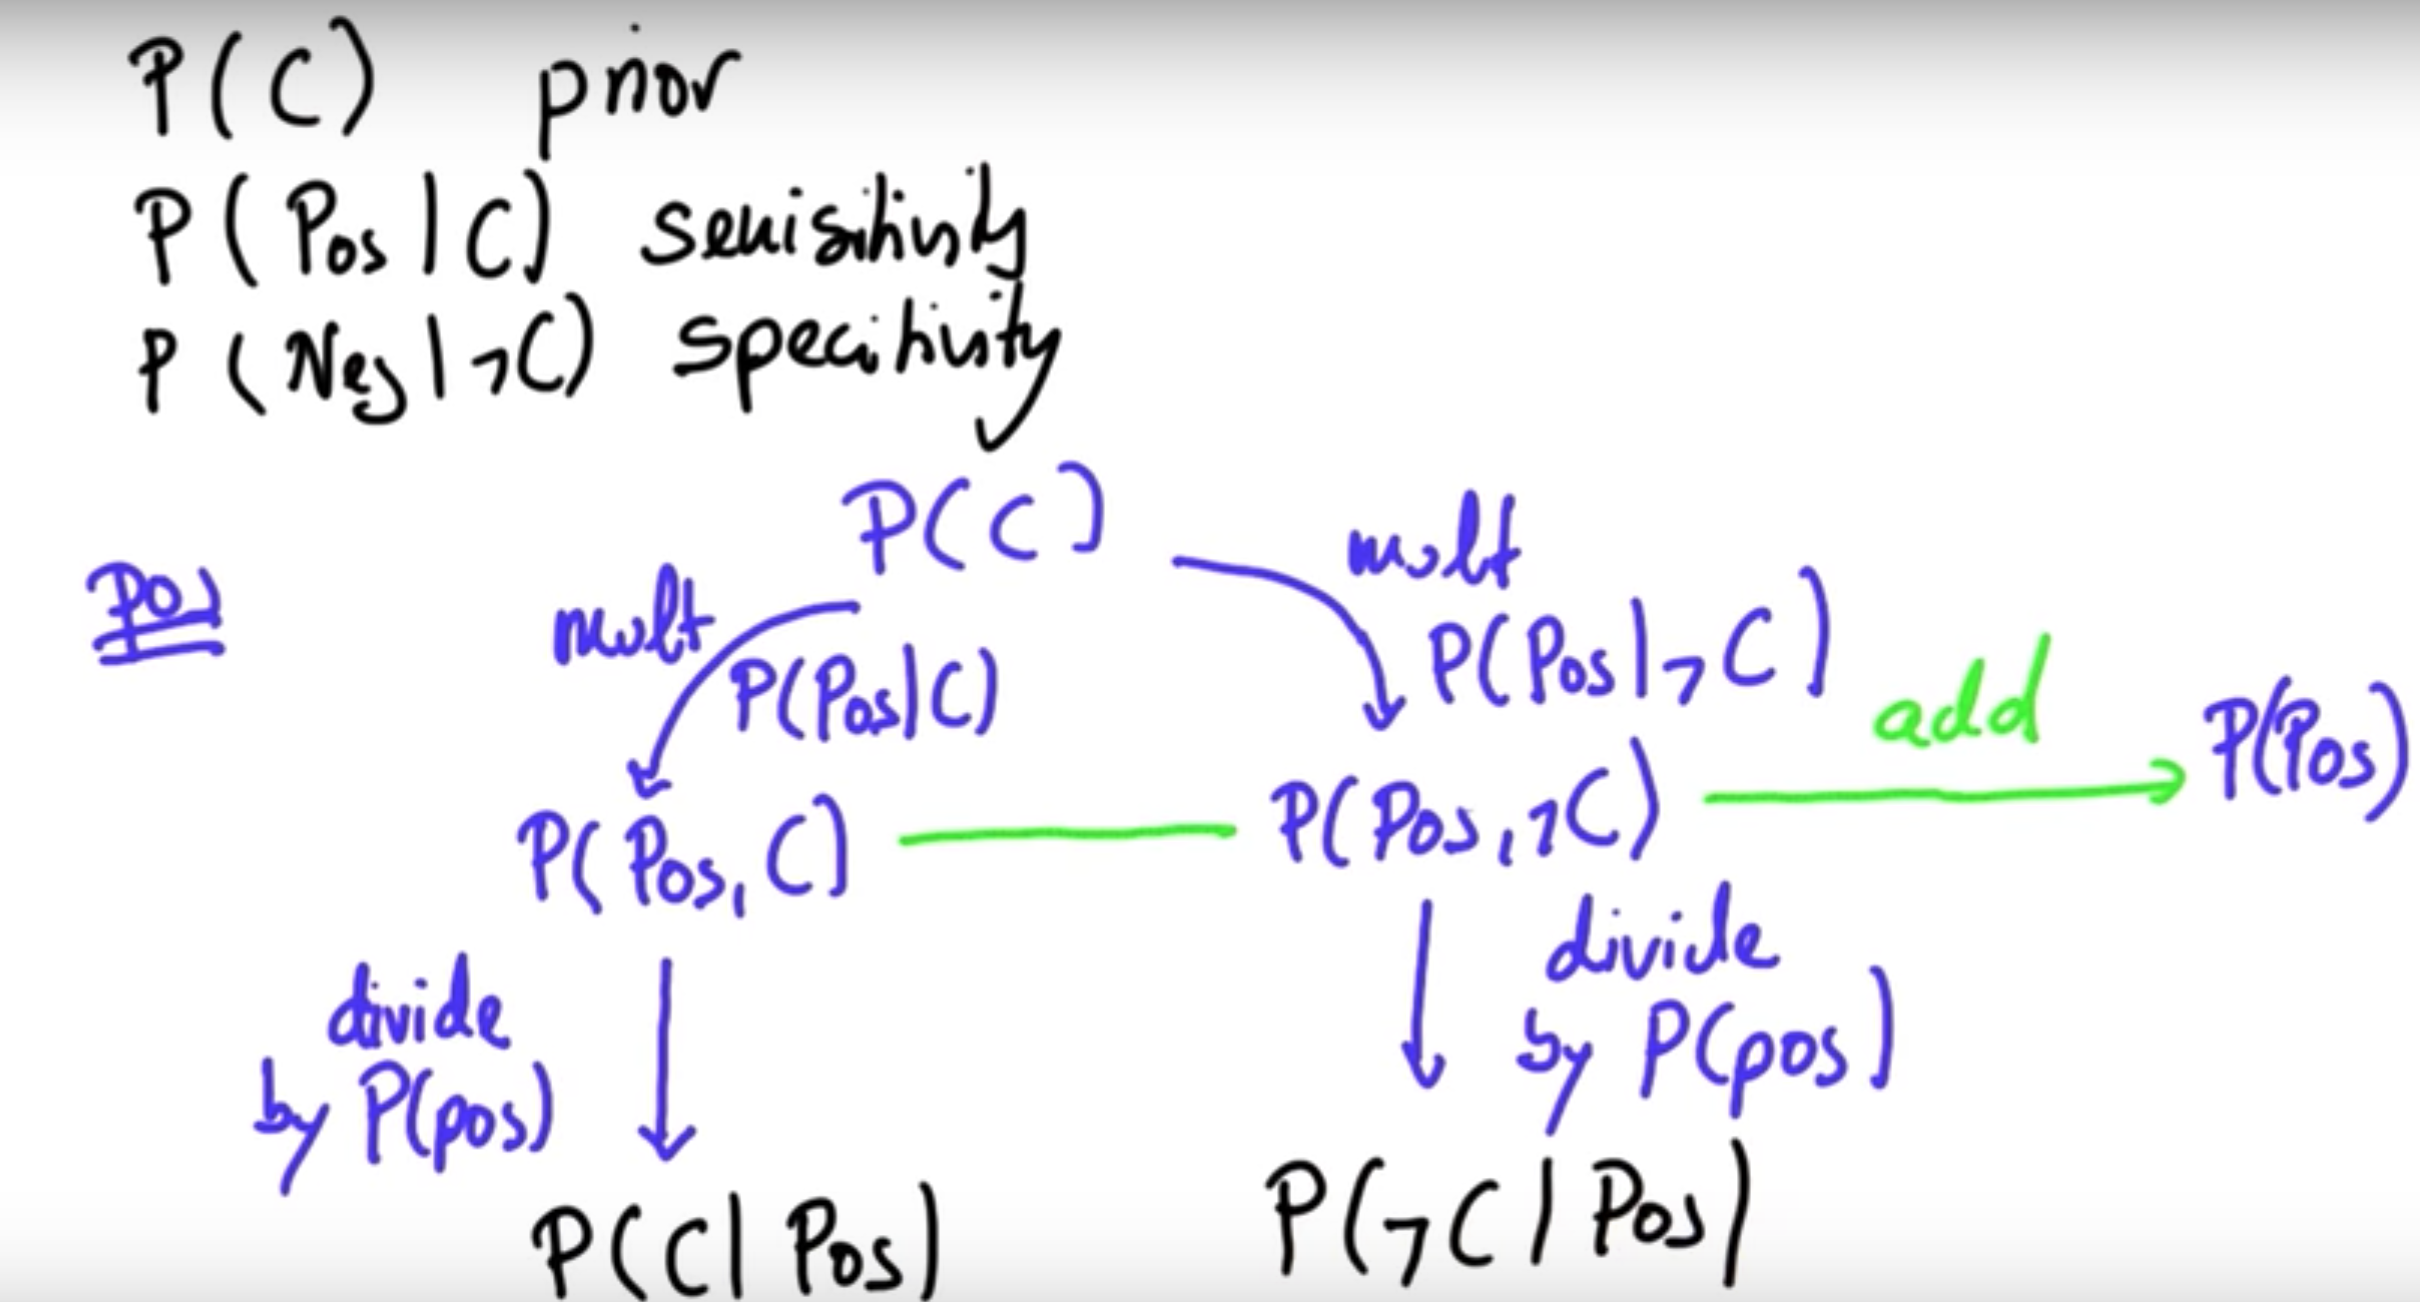 P(C) prior
P(Pos|C) sensitivity
P(Neg|¬C) specitivity
P(C)
mult
Pos
mult
P(Pos|¬C)
P(Pos|C)
add
P(Pos)
P(Pos,C)
P(Pos,¬C)
divide
by P(pos)
divide
by P(pos)
P(C|Pos)
P(¬C|Pos)